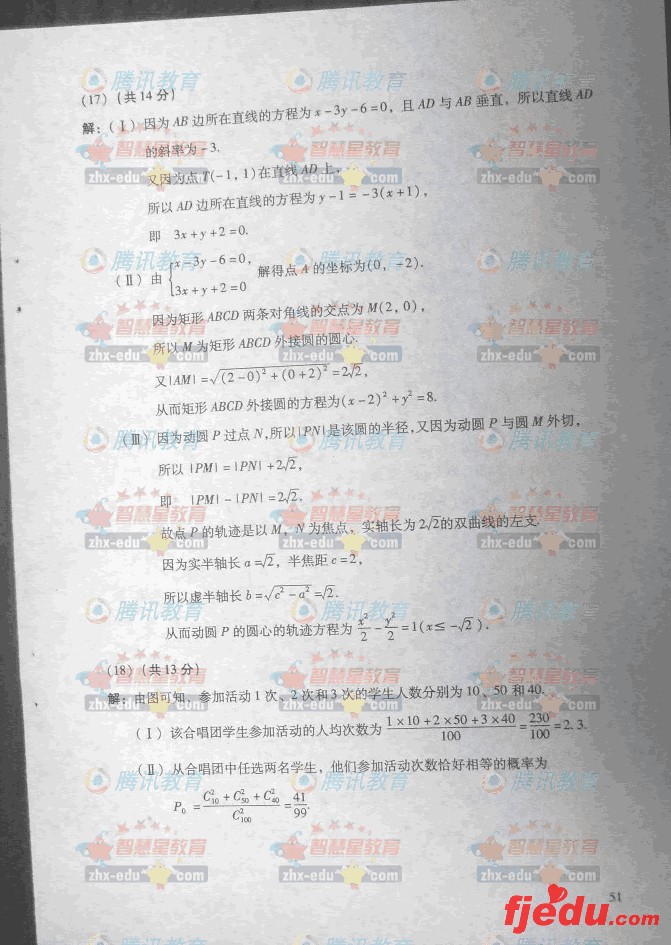 (17)(共14分)
解:(Ⅰ)因为AB边所在直线的方程为x-3y-6=0,且AD与AB垂直,所以直线AD
的斜率为-3.
又因为点T(-1,1)在直线AD上,
所以AD边所在直线的方程为y-1=-3(x+1),
即 3x+y+2=0.
(Ⅱ)由{x-3y-6=0, 3x+y+2=0 解得点A的坐标为(0,-2).
因为矩形ABCD两条对角线的交点为M(2,0),
所以M为矩形ABCD外接圆的圆心.
又|AM|=√((2-0)²+(0+2)²)=2√2,
从而矩形ABCD外接圆的方程为(x-2)²+y²=8.
(Ⅲ)因为动圆P过点N,所以|PN|是该圆的半径,又因为动圆P与圆M外切,
所以 |PM|=|PN|+2√2,
即 |PM|-|PN|=2√2.
故点P的轨迹是以M,N为焦点,实轴长为2√2的双曲线的左支.
因为实半轴长a=√2,半焦距c=2,
所以虚半轴长b=√(c²-a²)=√2.
从而动圆P的圆心的轨迹方程为x²/2-y²/2=1(x≤-√2).
(18)(共13分)
解:由图可知,参加活动1次、2次和3次的学生人数分别为10、50和40.
(Ⅰ)该合唱团学生参加活动的人均次数为(1×10+2×50+3×40)/100=230/100=2.3.
(Ⅱ)从合唱团中任选两名学生,他们参加活动次数恰好相等的概率为
P₀=(C²₁₀+C²₅₀+C²₄₀)/C²₁₀₀=41/99.
51
fjedu.com
腾讯教育
智慧星教育
zhx-edu.com